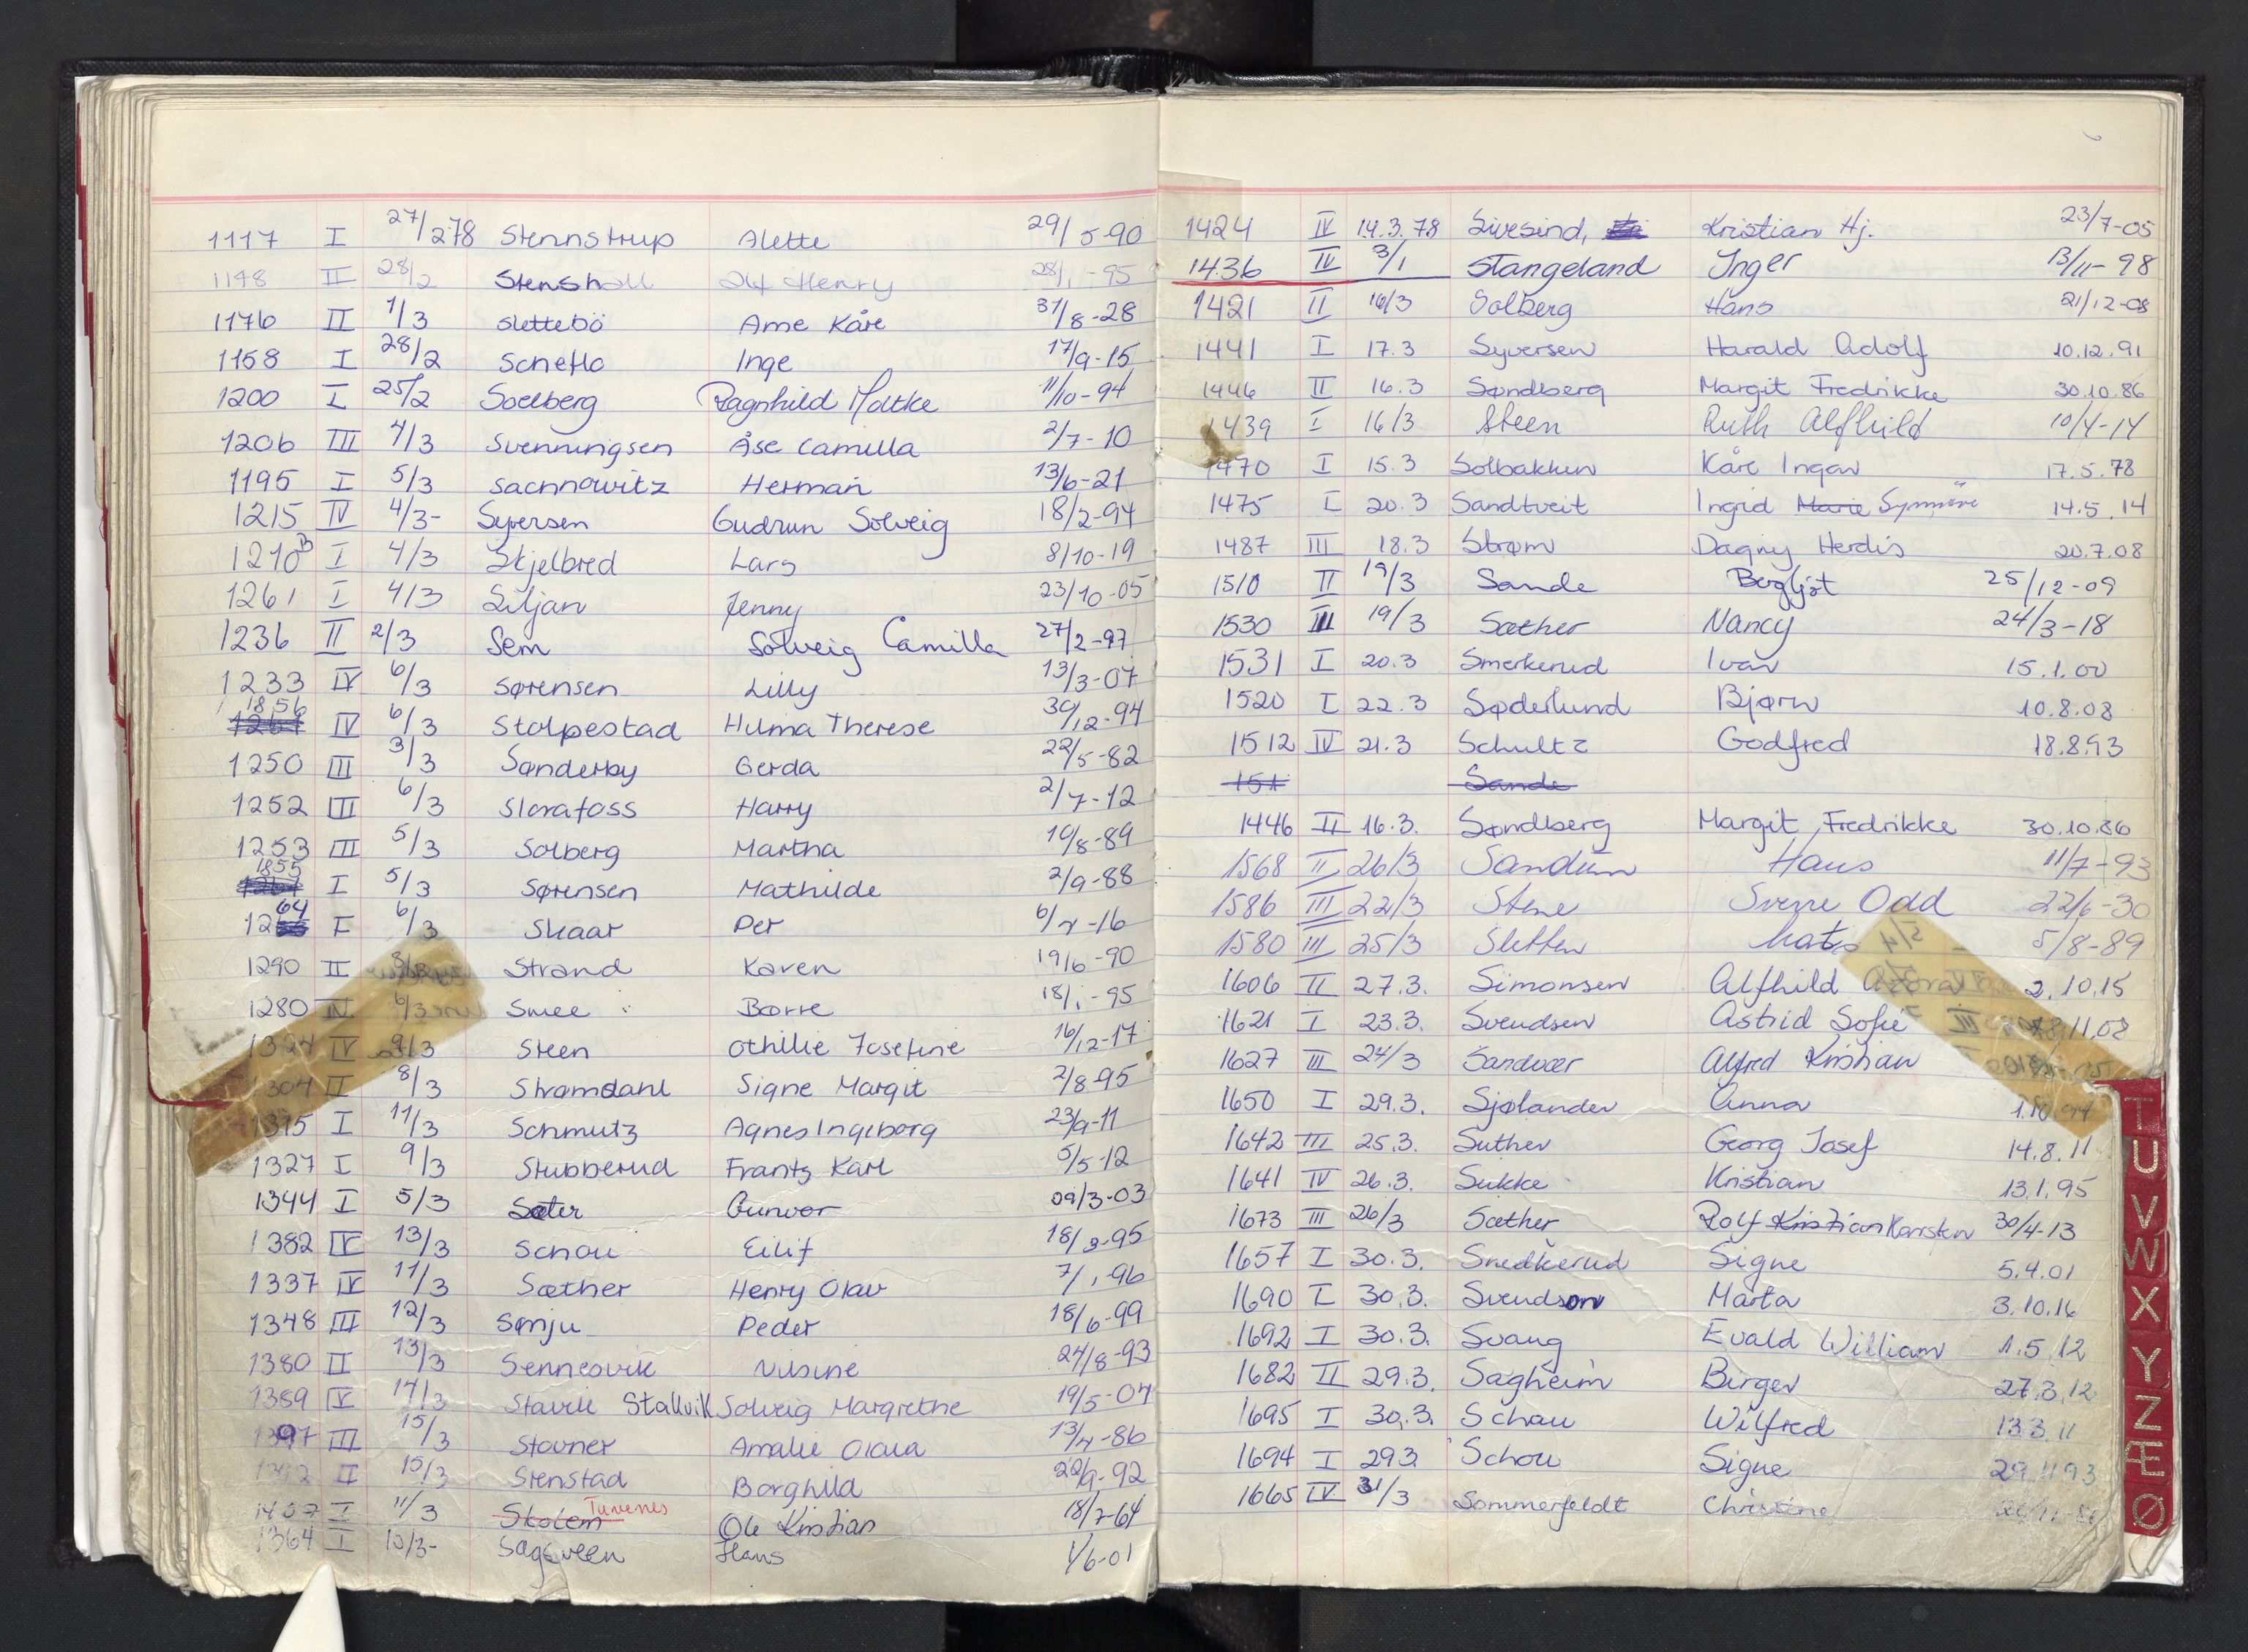 1117 I 27/2 78 Stennstrup Alette 29/5-90
1148 II 28/2 Stenshall Alf Henry 28/1-95
1176 II 1/3 Slettebö Arne Kåre 31/8-28
1158 I 28/2 Scheflo Inge 17/9-15
1200 I 25/2 Soelberg Ragnhild Moltke 11/10-94
1206 III 4/3 Svenningsen Åse Camilla 2/7-10
1195 I 5/3 Sachnowitz Herman 13/6-21
1215 IV 4/3- Syversen Gudrun Solveig 18/2-94
1210B I 4/3 Skjelbred Lars 8/10-19
1261 I 4/3 Siljan Jenny 23/10-05
1236 II 2/3 Sem Solveig Camilla 27/2-97
1233 IV 6/3 Sørensen Lilly 13/3-07
1856 IV 6/3 Stolpestad Hilma Therese 30/12-94
1250 III 3/3 Sønderby Gerda 22/5-82
1252 III 6/3 Skrafoss Harry 2/7-12
1253 III 5/3 Solberg Martha 10/8-89
1855 I 5/3 Sørensen Mathilde 2/9-88
1264 I 6/3 Skaar Per 6/7-16
1290 II Strand Karen 19/6-90
1280 IV 6/3 Smee Børre 18/1-95
1324 IV 9/3 Steen Othilie Josefine 16/12-17
1304 II 8/3 Strømdahl Signe Margit 2/8-95
1395 I 11/3 Schmutz Agnes Ingeborg 23/9-11
1327 I 9/3 Stubberud Frantz Karl 5/5-12
1344 I 5/3 Sæter Gunvor 09/3-03
1382 IV 13/3 Schou Eilif 18/3-95
1337 IV 11/3 Sæther Henry Olav 7/1-96
1348 III 12/3 Sønju Peder 18/6-99
1380 II 13/3 Sennesvik 24/8-93
1389 IV 14/3 Stavik Stallvik Solveig Margrethe 19/5-04
1397 III 15/3 Stovner Amalie Olava 13/4-86
1392 II 15/3 Stenstad Borghild 22/9-92
1407 I 11/3 Stolem Tuvenes Ole Kristian 18/7-64
1364 I 10/3- Sagsveen Hans 1/6-01
1424 IV 14.3.78 Sivesind, Kristian Hj. 23/7-05
1436 IV 3/1 Stangeland Inger 13/11-98
1421 II 16/3 Solberg Hans 21/12-08
1441 I 17.3 Syversen Harald Adolf 10.12.91
1446 II 16.3 Søndberg Margit Fredrikke 30.10.86
1439 I 16/3 Steen Ruth Alfhild 10/4-14
1470 I 15.3 Solbakken Kåre Ingar 17.5.78
1475 I 20.3 Sandtveit Ingrid Marie Synnöve 14.5.14
1487 III 18.3 Strøm Dagny Herdis 20.7.08
1510 II 19/3 Sande Bergljot 25/12-09
1530 III 19/3 Sæther Nancy 24/3-18
1531 I 20.3 Smerkerud Ivar 15.1.00
1520 I 22.3 Søderlund Bjørn 10.8.08
1512 IV 21.3 Schultz Godfred 18.8.93
151 Sande
1446 II 16.3. Søndberg Margit Fredrikke 30.10.86
1568 II 26/3 Sandum Hans 11/7-93
1586 III 22/3 Stene Sverre Odd 22/6-30
1580 III 25/3 Sletten 5/8-89
1606 II 27.3. Simonsen Alfhild 2.10.15
1621 I 23.3. Svendsen Astrid Sofie 11.08
1627 III 24/3 Sandvær Alfred Kristian
1650 I 29.3. Sjølander Anna
1642 III 25.3. Suther Georg Josef 14.8.11
1641 IV 26.3. Sukke Kristian 13.1.95
1673 III 26/3 Sæther Rolf Kristian Karsten 30/4-13
1657 I 30.3. Snedkerud Signe 5.4.01
1690 I 30.3. Svendson Marta 3.10.16
1692 I 30.3. Svang Evald William 1.5.12
1682 II 29.3. Sagheim Birger 27.3.12
1695 I 30.3. Schau Wilfred 13.3.11
1694 I 29.3 Schou Signe 29.11.93
1665 IV 31/3 Sommerfeldt Christine
T
U
V
W
X
Y
Z
Æ
Ø